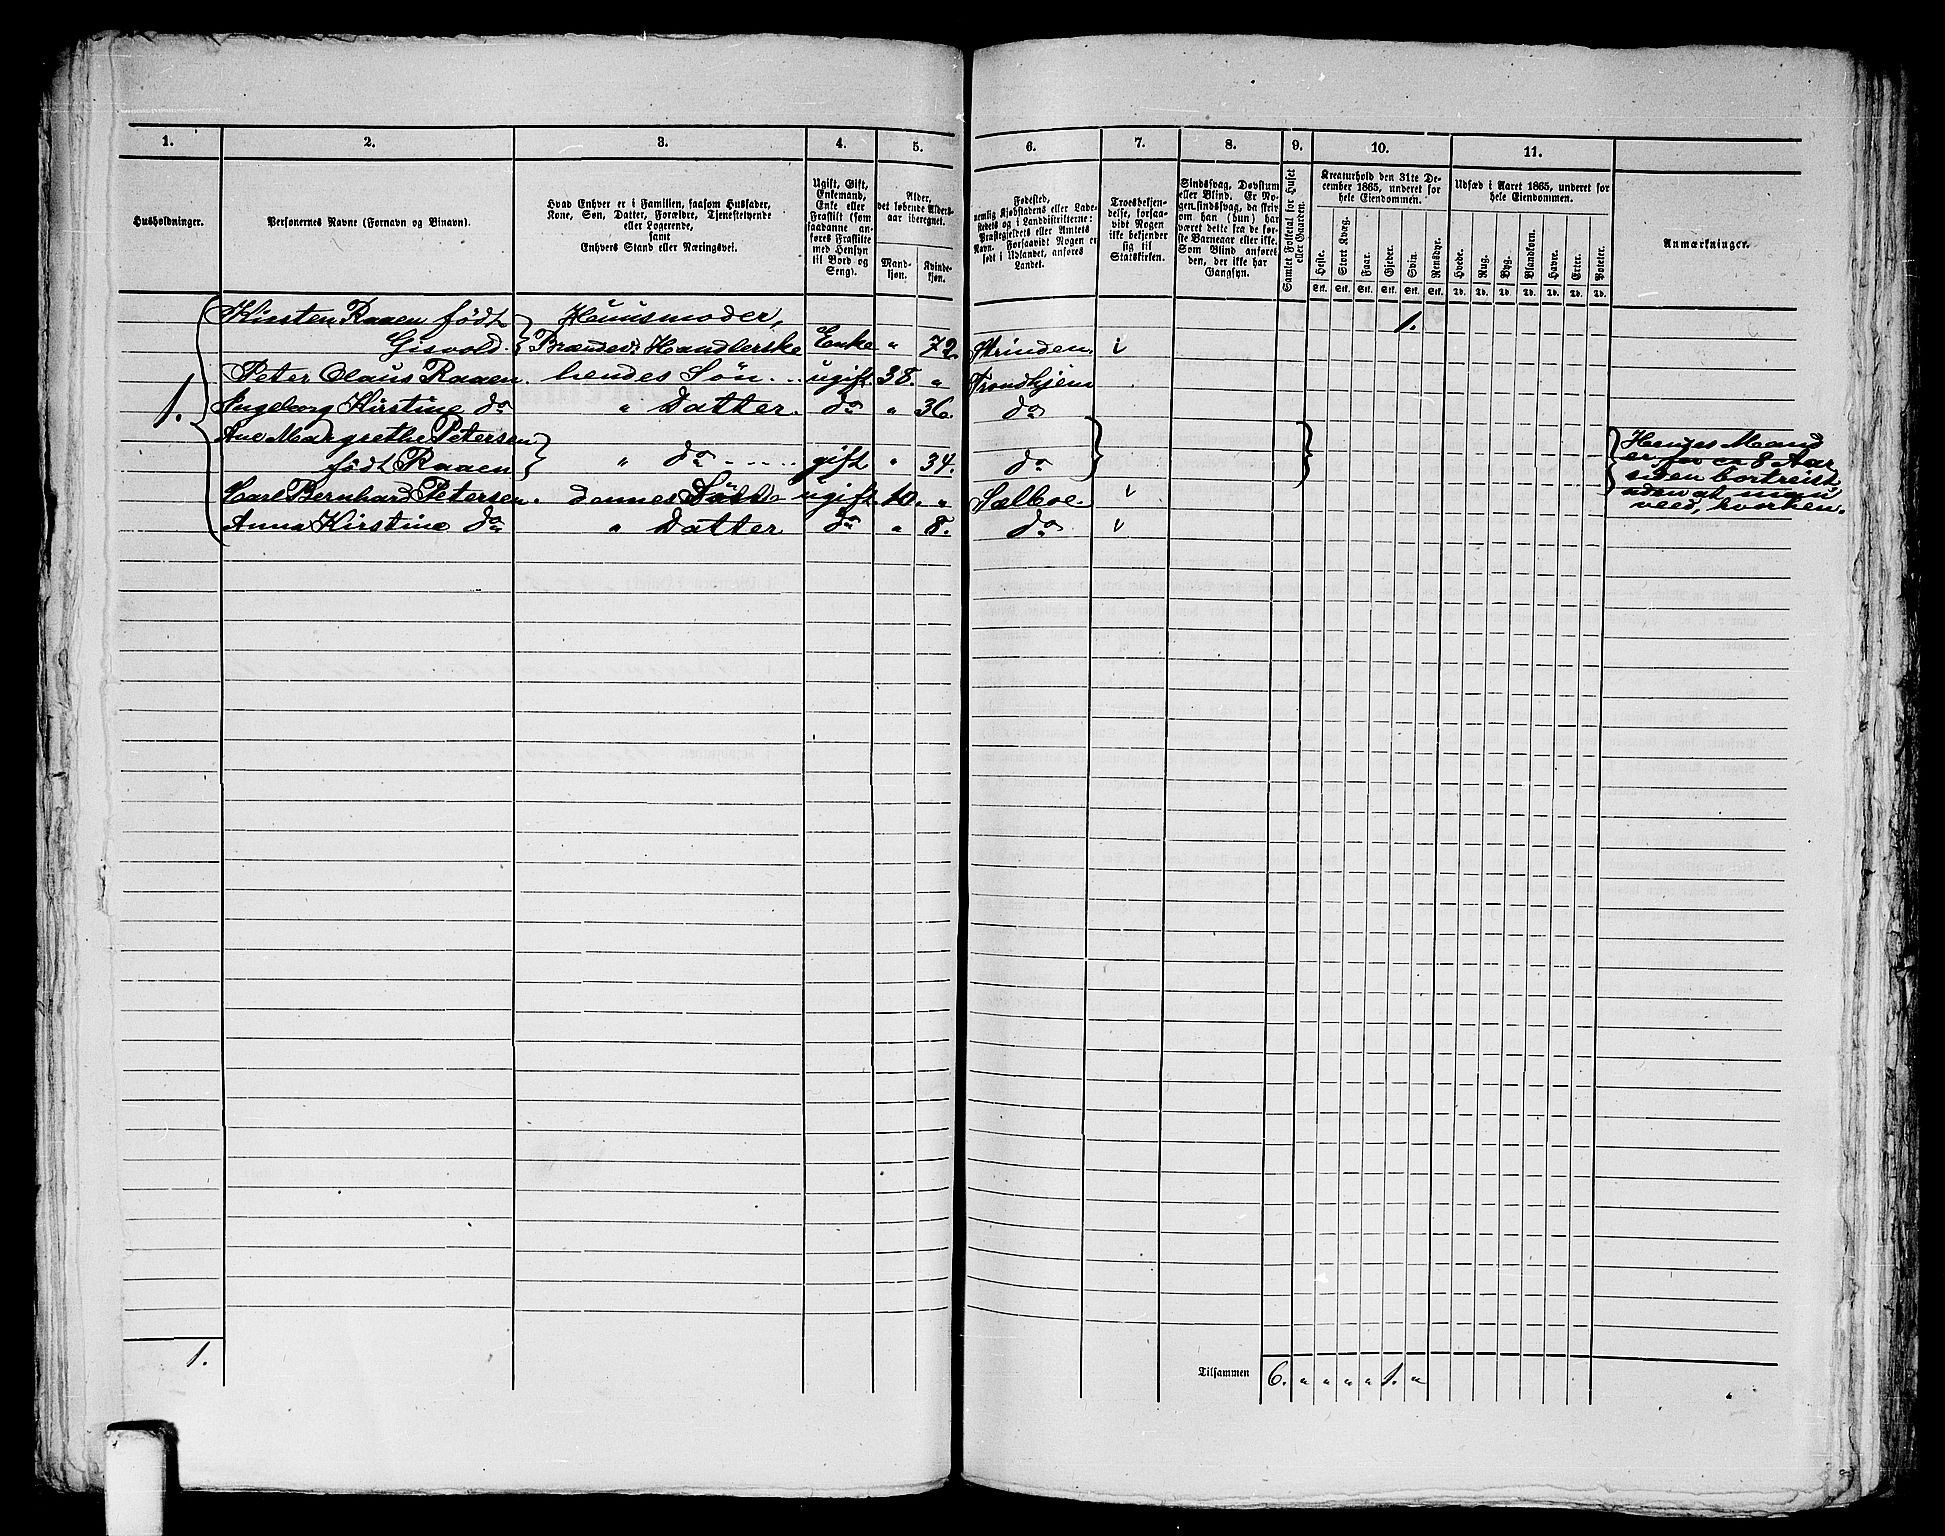 1. 2. 3. 4. 5. 6. 7. 8. 9. 10. 11.
Husholdninger.
Personernes Navne (Fornavn og Binavn).
Hvad Enhver er i Familien, saasom Husfader,
Kone, Søn, Datter, Forældre, Tjenestetyende
eller Logerende,
samt
Enhvers Stand eller Næringsvei.
Ugift, Gift,
Enkemand,
Enke eller
Fraskilt (som
saadanne an-
føres Fraskilte
med Hensyn
til Bord og
Seng).
Alder,
det løbende Alders-
aar iberegnet.
Mand-
kjøn.
Kvinde-
kjøn.
Fødested,
nemlig Kjøbstadens eller Lade-
stedets og i Landdistrikterne:
Præstegjeldets eller Amtets
Navn. Forsaavidt Nogen er
født i Udlandet, anføres
Landet.
Troesbekjen-
delse, forsaa-
vidt Nogen
ikke bekjender
sig til
Statskirken.
Sindssvag, Døvstum
eller Blind. Er No-
gen sindssvag, da skriv
om han (hun) har
været dette fra de før-
ste Barneaar eller ikke.
Som Blind anføres
den, der ikke har
Gangsyn.
Samlet Folketal for Huset
eller Gaarden.
Kreaturhold den 31te De-
cember 1865, underet for
hele Eiendommen.
Heste. Stort Kvæg. Faar. Gjeder. Svin. Rensdyr.
Stk. Stk. Stk. Stk. Stk. Stk.
Udsæd i Aaret 1865, underet for
hele Eiendommen.
Hvede. Rug. Byg. Blandkorn. Havre. Erter. Poteter.
Td. Td. Td. Td. Td. Td. Td.
Anmærkninger.
Kirsten Raaen født Huusmoder, 1.
Gisvold. Handlerske Enke " 72. Strinden
Peter Claus Raaen. hendes Søn ugift 38. " Trondhjem
1. Ingeborg Kirstine do " Datter. do " 36. do
Ane Margrethe Petersen
født Raaen " do gift " 34. do
Hendes Mand
er for ca 8 Aar
siden bortreist
uden at man
veed, hvorhen.
Carl Bernhard Petersen. dennes Søn ugift 10. " Sælboe
Anna Kirstine do " Datter do " 8. do
1. Tilsammen 6. " " " " 1. "